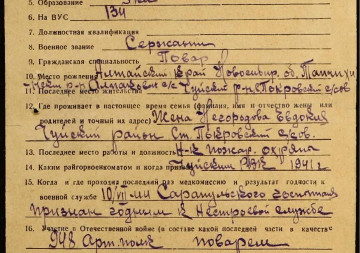 5. Образование
6. На ВУС 134
7. Должностная квалификация
8. Военное звание Сержант
9. Гражданская специальность Повар
10. Место рождения Алтайский край Новосибир. об.
11. Последнее место жительства Чуйский р-н Покровский с/сов.
12. Где проживает в настоящее время семья (фамилия, имя и отчество жены или
родителей и точный адрес) Жена Негородова Евдокия
Чуйский район Ст. Покровский с/сов.
13. Последнее место работы и должность Н-к пожар. охраны
14. Каким райгорвоенкоматом и когда призван Чуйским РВК 1941 г.
15. Когда и где проходил последний раз медкомиссию и результат годности к
военной службе 10/VII Сарапульского госпиталя
признан годным к нестроевой службе
16. Участие в Отечественной войне (в составе какой последней части и в качестве
948 Арт. полк поваром